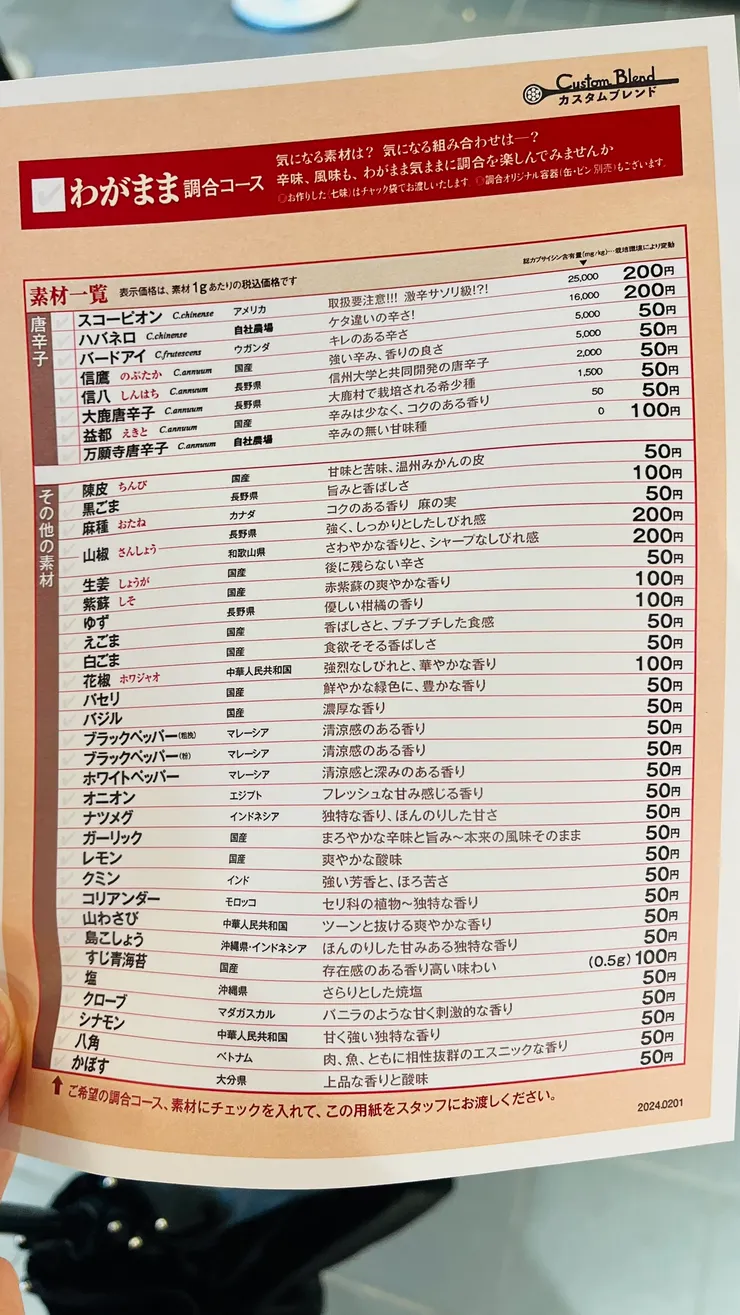 Custom Blend
カスタムブレンド
わがまま調合コース
気になる素材は? 気になる組み合わせは―?
辛味、風味も、わがまま気ままに調合を楽しんでみませんか
お作りした「七味」はチャック袋でお渡しいたします。 調合オリジナル容器(缶・ビン 別売)もございます。
素材一覧 表示価格は、素材1gあたりの税込価格です 総カプサイシン含有量(mg/kg)…栽培環境により変動
唐辛子
スコーピオン C.chinense アメリカ 取扱要注意!!! 激辛サソリ級!?! 25,000 200円
ハバネロ C.chinense 自社農場 ケタ違いの辛さ! 16,000 200円
バードアイ C.frutescens ウガンダ キレのある辛さ 5,000 50円
信鷹 のぶたか C.annuum 国産 強い辛み、香りの良さ 5,000 50円
信八 しんはち C.annuum 長野県 信州大学と共同開発の唐辛子 2,000 50円
大鹿唐辛子 C.annuum 長野県 大鹿村で栽培される希少種 1,500 50円
益都 えきと C.annuum 国産 辛みは少なく、コクのある香り 50 50円
万願寺唐辛子 C.annuum 自社農場 辛みの無い甘味種 0 100円
その他の素材
陳皮 ちんぴ 国産 甘味と苦味、温州みかんの皮 50円
黒ごま 長野県 旨みと香ばしさ 100円
麻種 おたね カナダ コクのある香り 麻の実 50円
山椒 さんしょう 長野県 強く、しっかりとしたしびれ感 200円
和歌山県 さわやかな香りと、シャープなしびれ感 200円
生姜 しょうが 国産 後に残らない辛さ 50円
紫蘇 しそ 国産 赤紫蘇の爽やかな香り 100円
ゆず 長野県 優しい柑橘の香り 100円
えごま 国産 香ばしさと、プチプチした食感 50円
白ごま 国産 食欲そそる香ばしさ 50円
花椒 ホワジャオ 中華人民共和国 強烈なしびれと、華やかな香り 100円
パセリ 国産 鮮やかな緑色に、豊かな香り 50円
バジル 国産 濃厚な香り 50円
ブラックペッパー(粗挽) マレーシア 清涼感のある香り 50円
ブラックペッパー(粉) マレーシア 清涼感のある香り 50円
ホワイトペッパー マレーシア 清涼感と深みのある香り 50円
オニオン エジプト フレッシュな甘み感じる香り 50円
ナツメグ インドネシア 独特な香り、ほんのりした甘さ 50円
ガーリック 国産 まろやかな辛味と旨み〜本来の風味そのまま 50円
レモン 国産 爽やかな酸味 50円
クミン インド 強い芳香と、ほろ苦さ 50円
コリアンダー モロッコ セリ科の植物〜独特な香り 50円
山わさび 中華人民共和国 ツーンと抜ける爽やかな香り 50円
島こしょう 沖縄県・インドネシア ほんのりした甘みある独特な香り 50円
すじ青海苔 国産 存在感のある香り高い味わい (0.5g)100円
塩 沖縄県 さらりとした焼塩 50円
クローブ マダガスカル バニラのような甘く刺激的な香り 50円
シナモン 中華人民共和国 甘く強い独特な香り 50円
八角 ベトナム 肉、魚、ともに相性抜群のエスニックな香り 50円
かぼす 大分県 上品な香りと酸味 50円
ご希望の調合コース、素材にチェックを入れて、この用紙をスタッフにお渡しください。
2024.0201